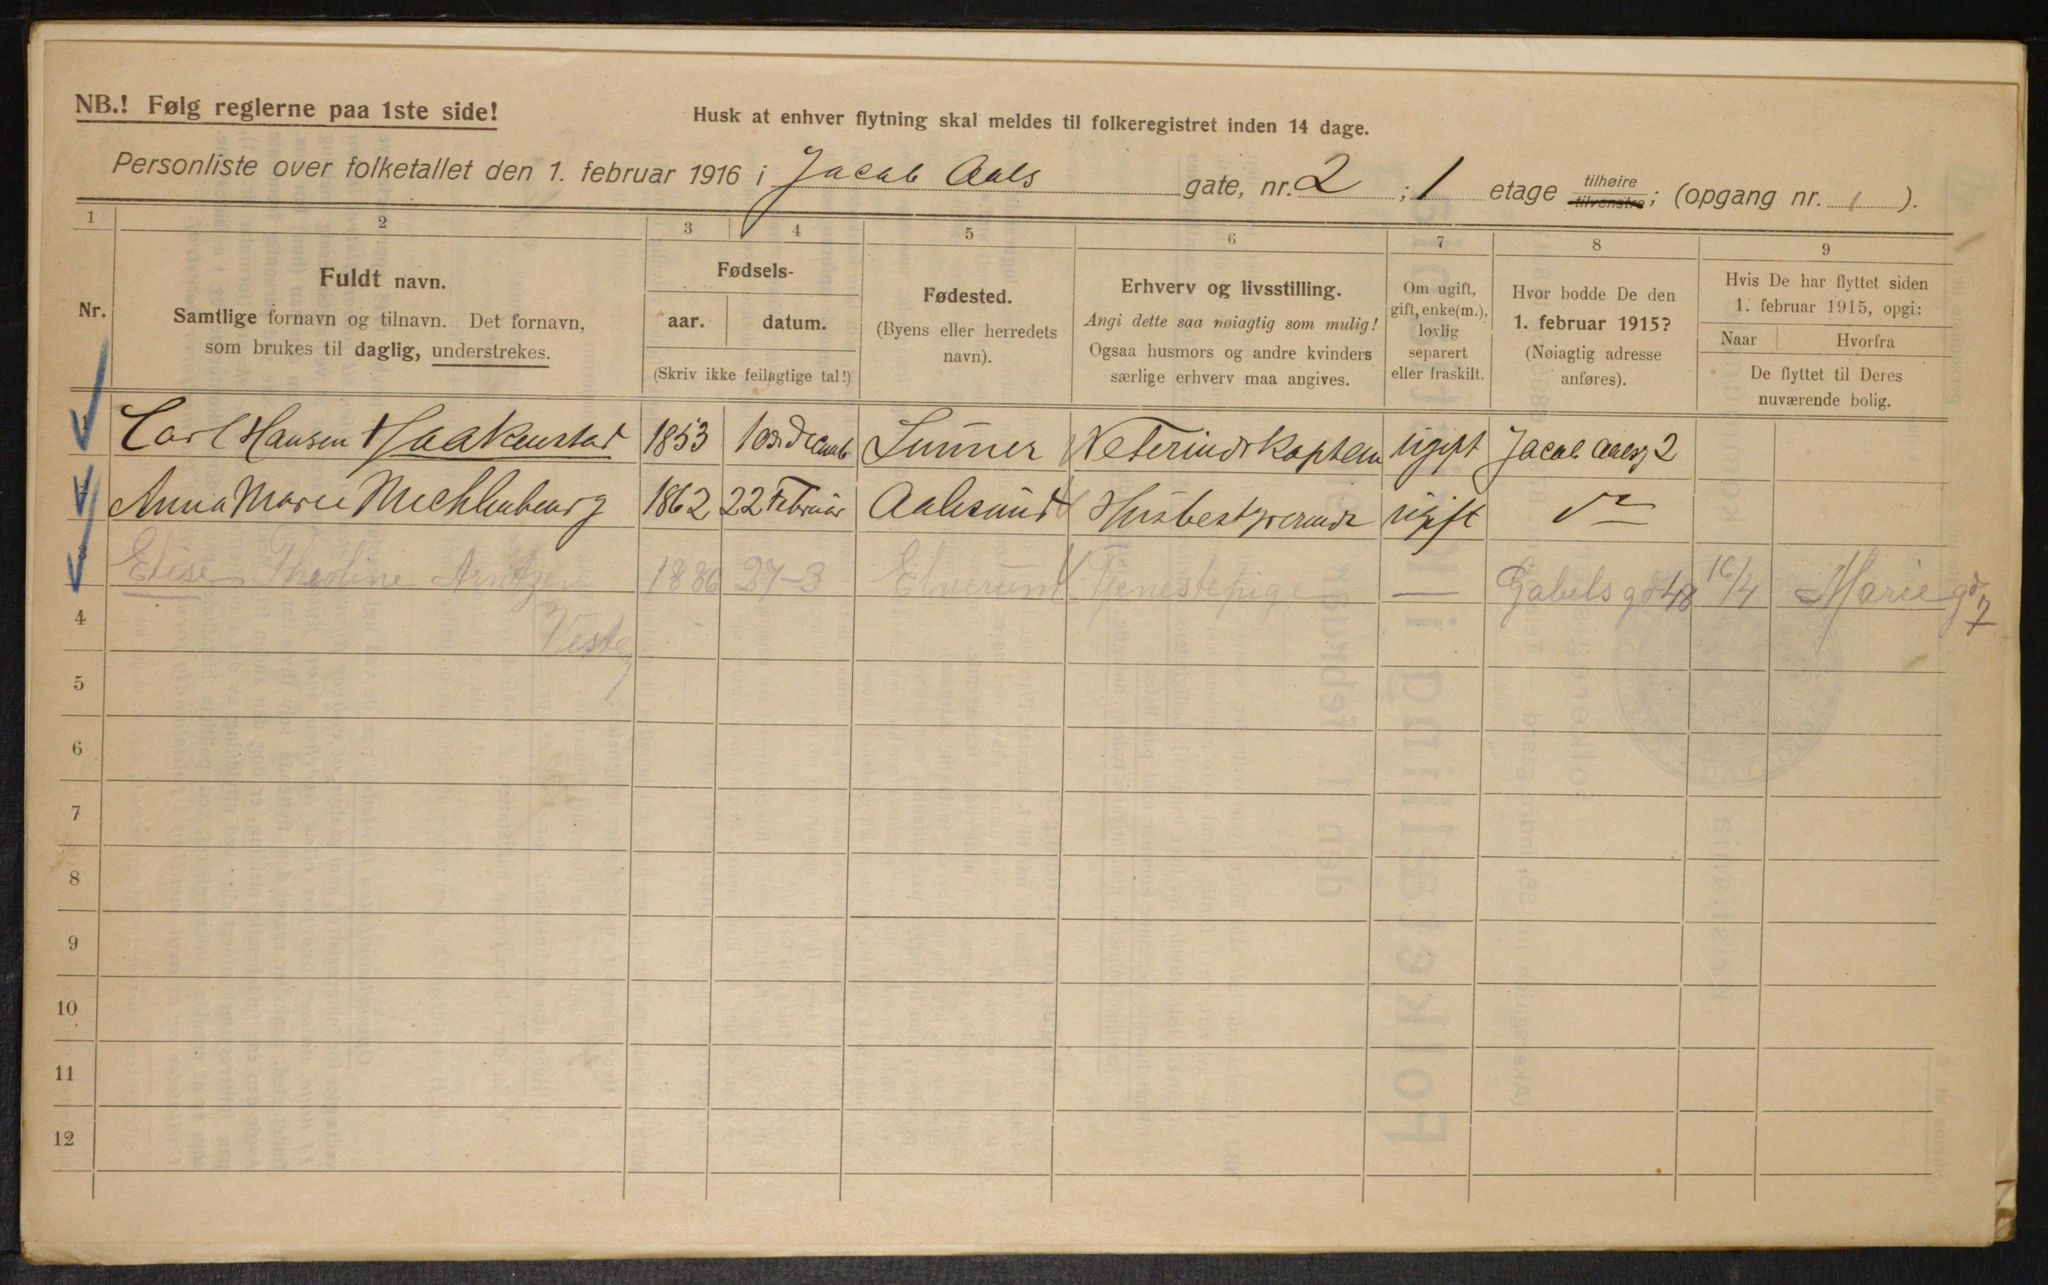 NB.! Følg reglerne paa 1ste side!
Husk at enhver flytning skal meldes til folkeregistret inden 14 dage.
Personliste over folketallet den 1. februar 1916 i Jacob Aals gate, nr. 2 ; 1 etage tilhøire tilvenstre ; (opgang nr. 1 ).
1 2 3 4 5 6 7 8 9
Nr.
Fuldt navn.
Samtlige fornavn og tilnavn. Det fornavn,
som brukes til daglig, understrekes.
Fødsels-
aar. datum.
(Skriv ikke feilagtige tal!)
Fødested.
(Byens eller herredets
navn).
Erhverv og livsstilling.
Angi dette saa nøiagtig som mulig!
Ogsaa husmors og andre kvinders
særlige erhverv maa angives.
Om ugift,
gift, enke(m.),
lovlig
separert
eller fraskilt.
Hvor bodde De den
1. februar 1915?
(Nøiagtig adresse
anføres).
Hvis De har flyttet siden
1. februar 1915, opgi:
Naar Hvorfra
De flyttet til Deres
nuværende bolig.
1 Carl Hansen Haakenstad 1853 10de Decemb Lunner Veterinærkaptein ugift Jacob Aalsg 2
2 Anna Marie Mechlenburg 1862 22 Februar Aalesund Husbestyrerinde ugift do
3 Elise Theoline Arntzen 1886 27-3 Elverum Tjenestepige — Gabels gd 48 16/4 Marie gd 7
4
5
6
7
8
9
10
11
12